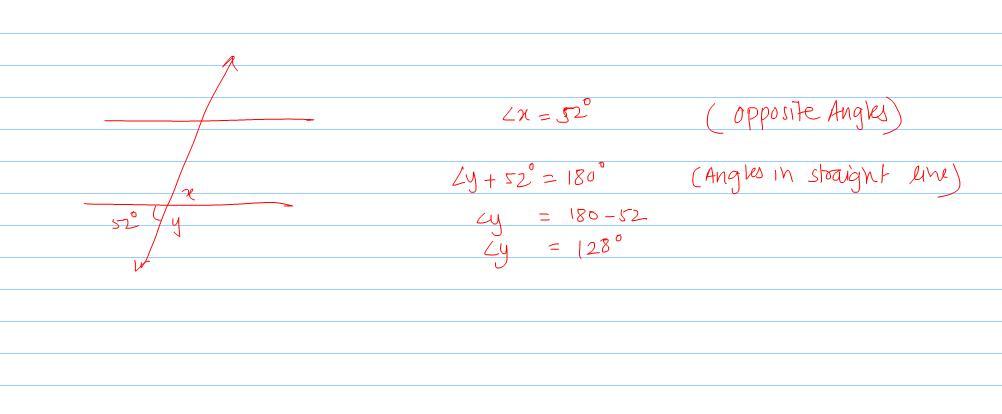 ∠x = 52° (opposite Angles)
∠y + 52° = 180° (Angles in straight line)
x
52° y
∠y = 180 - 52
∠y = 128°